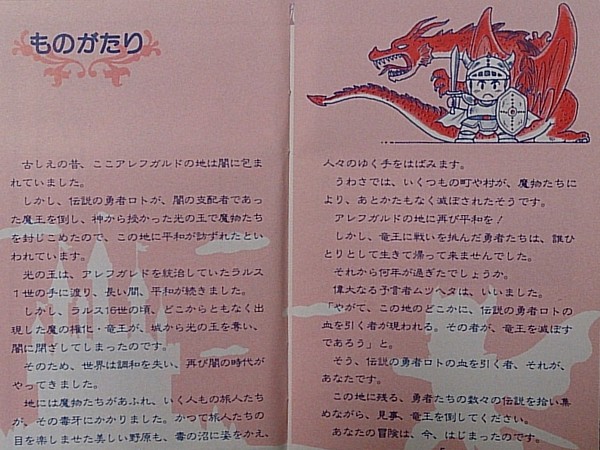 ものがたり
古しえの昔、ここアレフガルドの地は闇に包ま
れていました。
しかし、伝説の勇者ロトが、闇の支配者であっ
た魔王を倒し、神から授かった光の玉で魔物たち
を封じこめたので、この地に平和が訪ずれたとい
われています。
光の玉は、アレフガルドを統治していたラルス
1世の手に渡り、長い間、平和が続きました。
しかし、ラルス16世の頃、どこからともなく出
現した魔の権化・竜王が、城から光の玉を奪い、
闇に閉ざしてしまったのです。
そのため、世界は調和を失い、再び闇の時代が
やってきました。
地には魔物たちがあふれ、いく人もの旅人たち
が、その毒牙にかかりました。かつて旅人たちの
目を楽しませた美しい野原も、毒の沼に姿をかえ、
人々のゆく手をはばみます。
うわさでは、いくつもの町や村が、魔物たちに
より、あとかたもなく滅ぼされたそうです。
アレフガルドの地に再び平和を!
しかし、竜王に戦いを挑んだ勇者たちは、誰ひ
とりとして生きて帰って来ませんでした。
それから何年が過ぎたでしょうか。
偉大なる予言者ムツヘタは、いいました。
「やがて、この地のどこかに、伝説の勇者ロトの
血を引く者が現われる。その者が、竜王を滅ぼす
であろう」と。
そう、伝説の勇者ロトの血を引く者、それが、
あなたです。
この地に残る、勇者たちの数々の伝説を拾い集
めながら、見事、竜王を倒してください。
あなたの冒険は、今、はじまったのです。